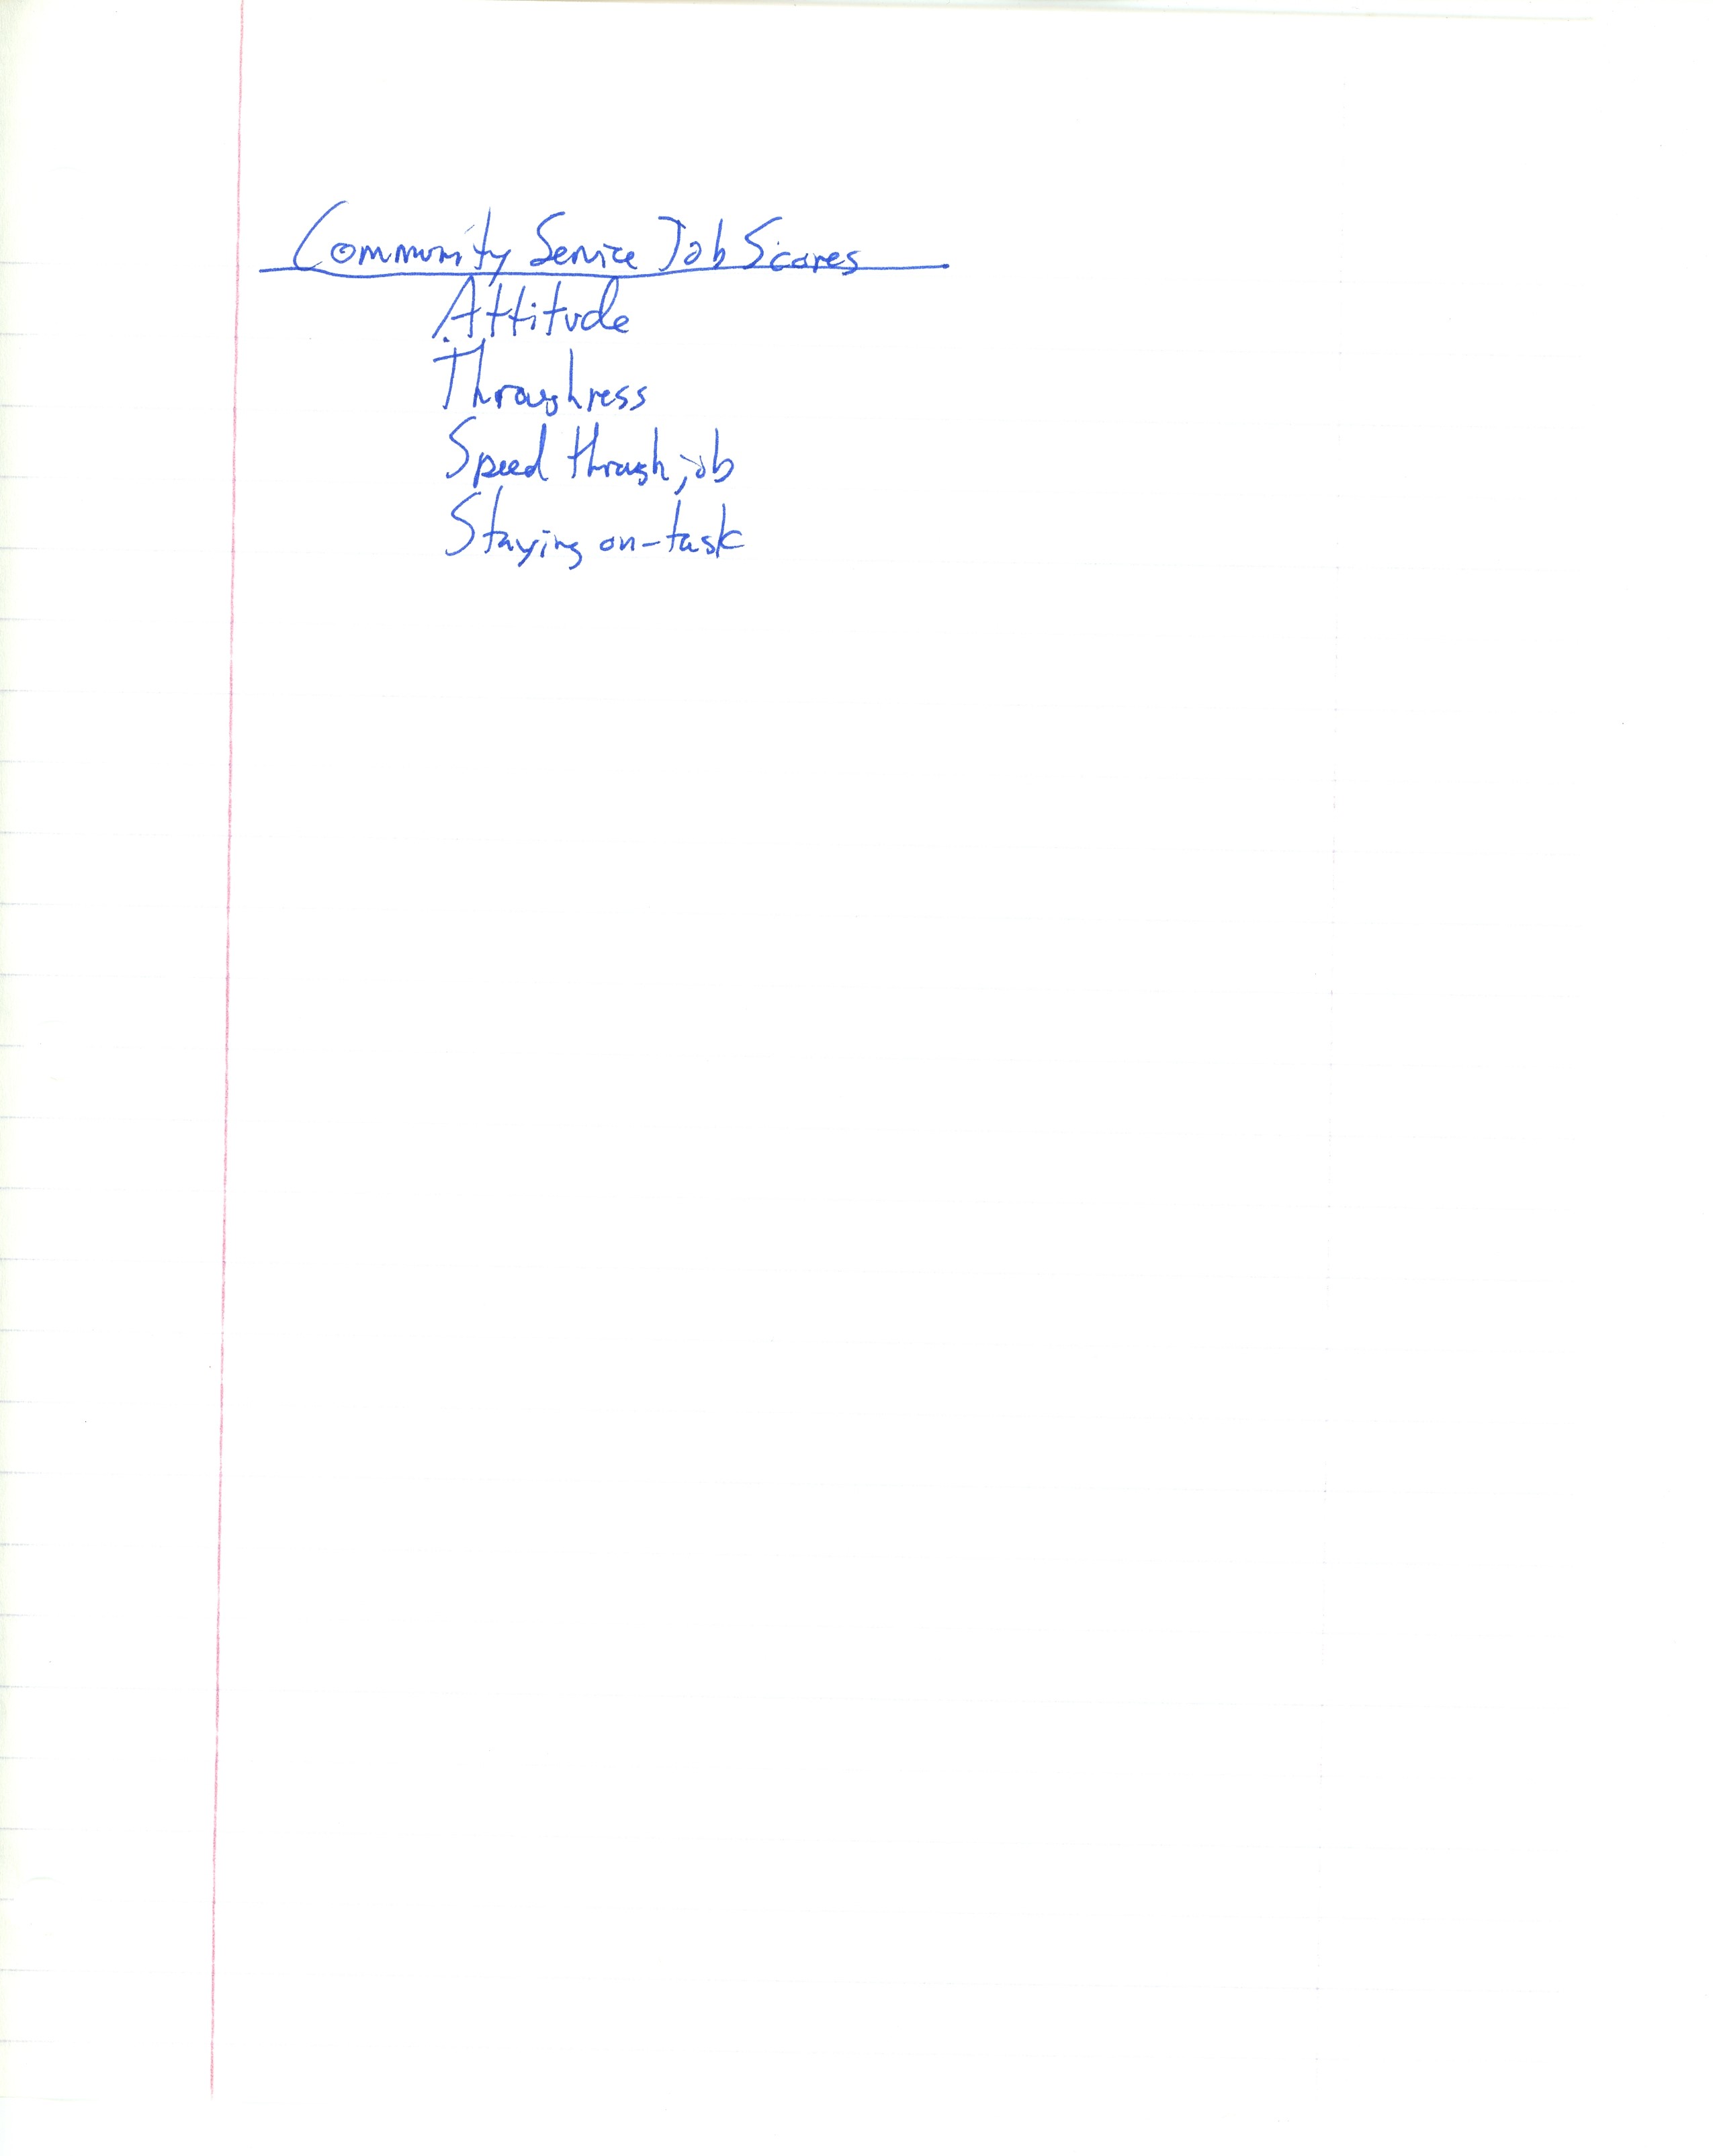 Community Service Job Scores
Attitude
Throughness
Speed through job
Staying on-task